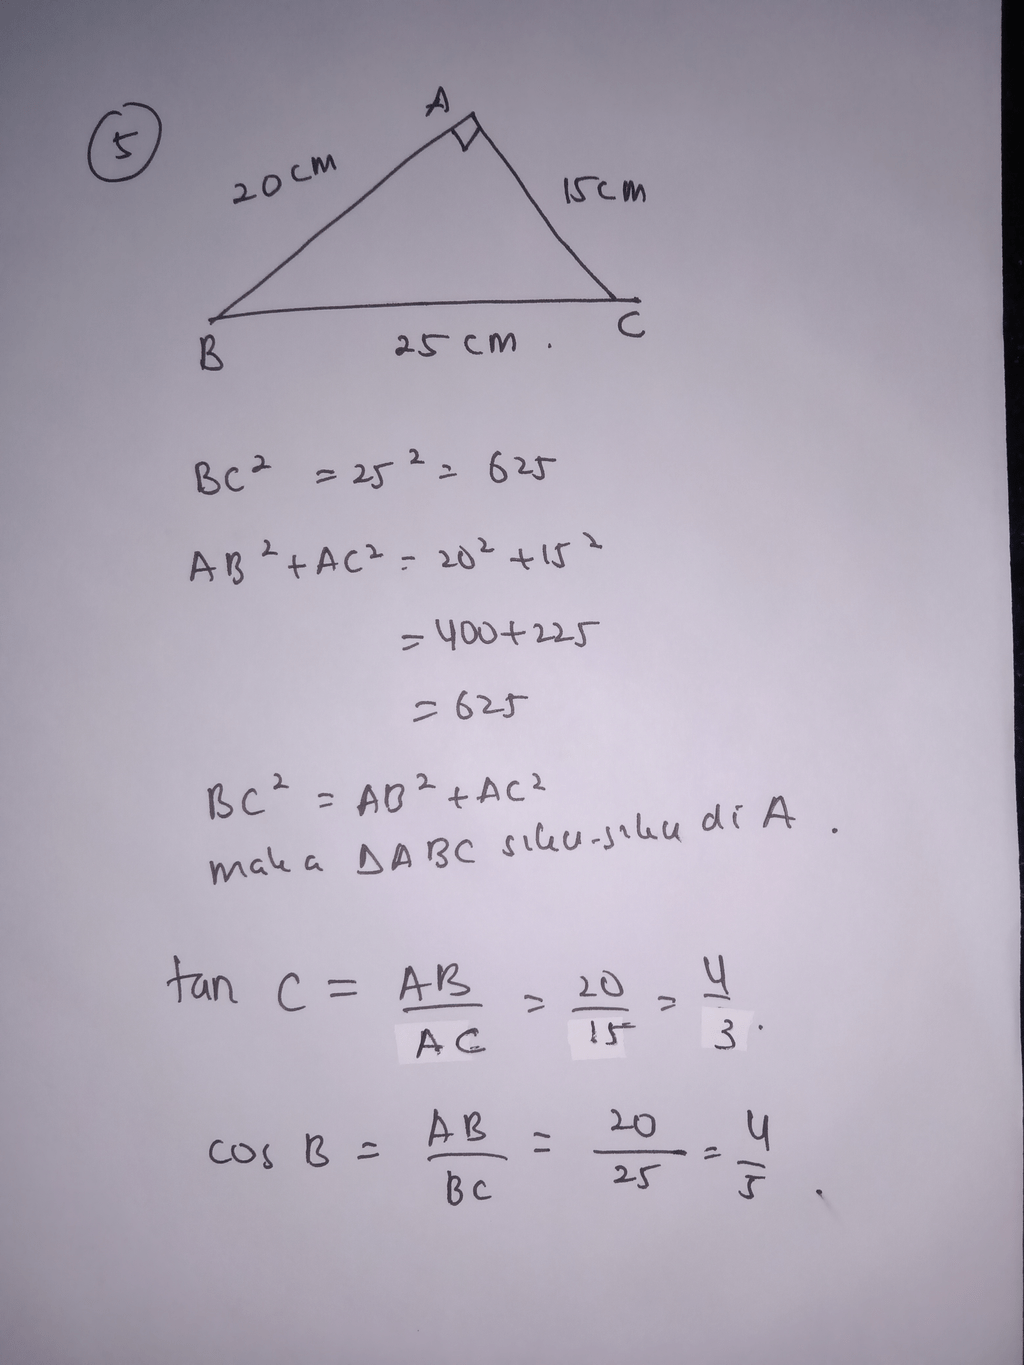 5
A
20 cm
15 cm
B
25 cm .
C
BC² = 25² = 625
AB² + AC² = 20² + 15²
= 400 + 225
= 625
BC² = AB² + AC²
maka ΔABC siku-siku di A .
tan C = AB/AC = 20/15 = 4/3 .
cos B = AB/BC = 20/25 = 4/5 .